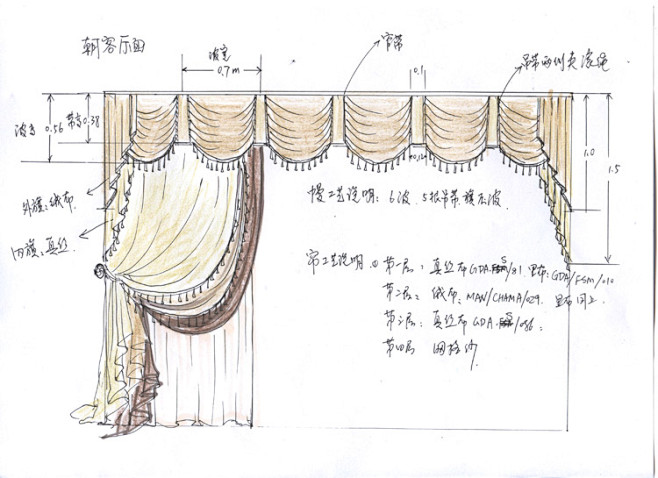 朝客示面
波宽
0.7m
帘带
0.1
吊带两侧夹滚绳
波高 0.56
带高 0.38
1.0
1.5
0.12
外旗:绒布
内旗:真丝
幔工艺说明:6波.5根吊带 旗压波.
帘工艺说明 ① 第一层:真丝布GDA /81.里布:GDA/FSM/010
第二层:绒布:MAN/CHAMA/029. 里布同上.
第三层:真丝布GDA /086.
第四层 网格纱